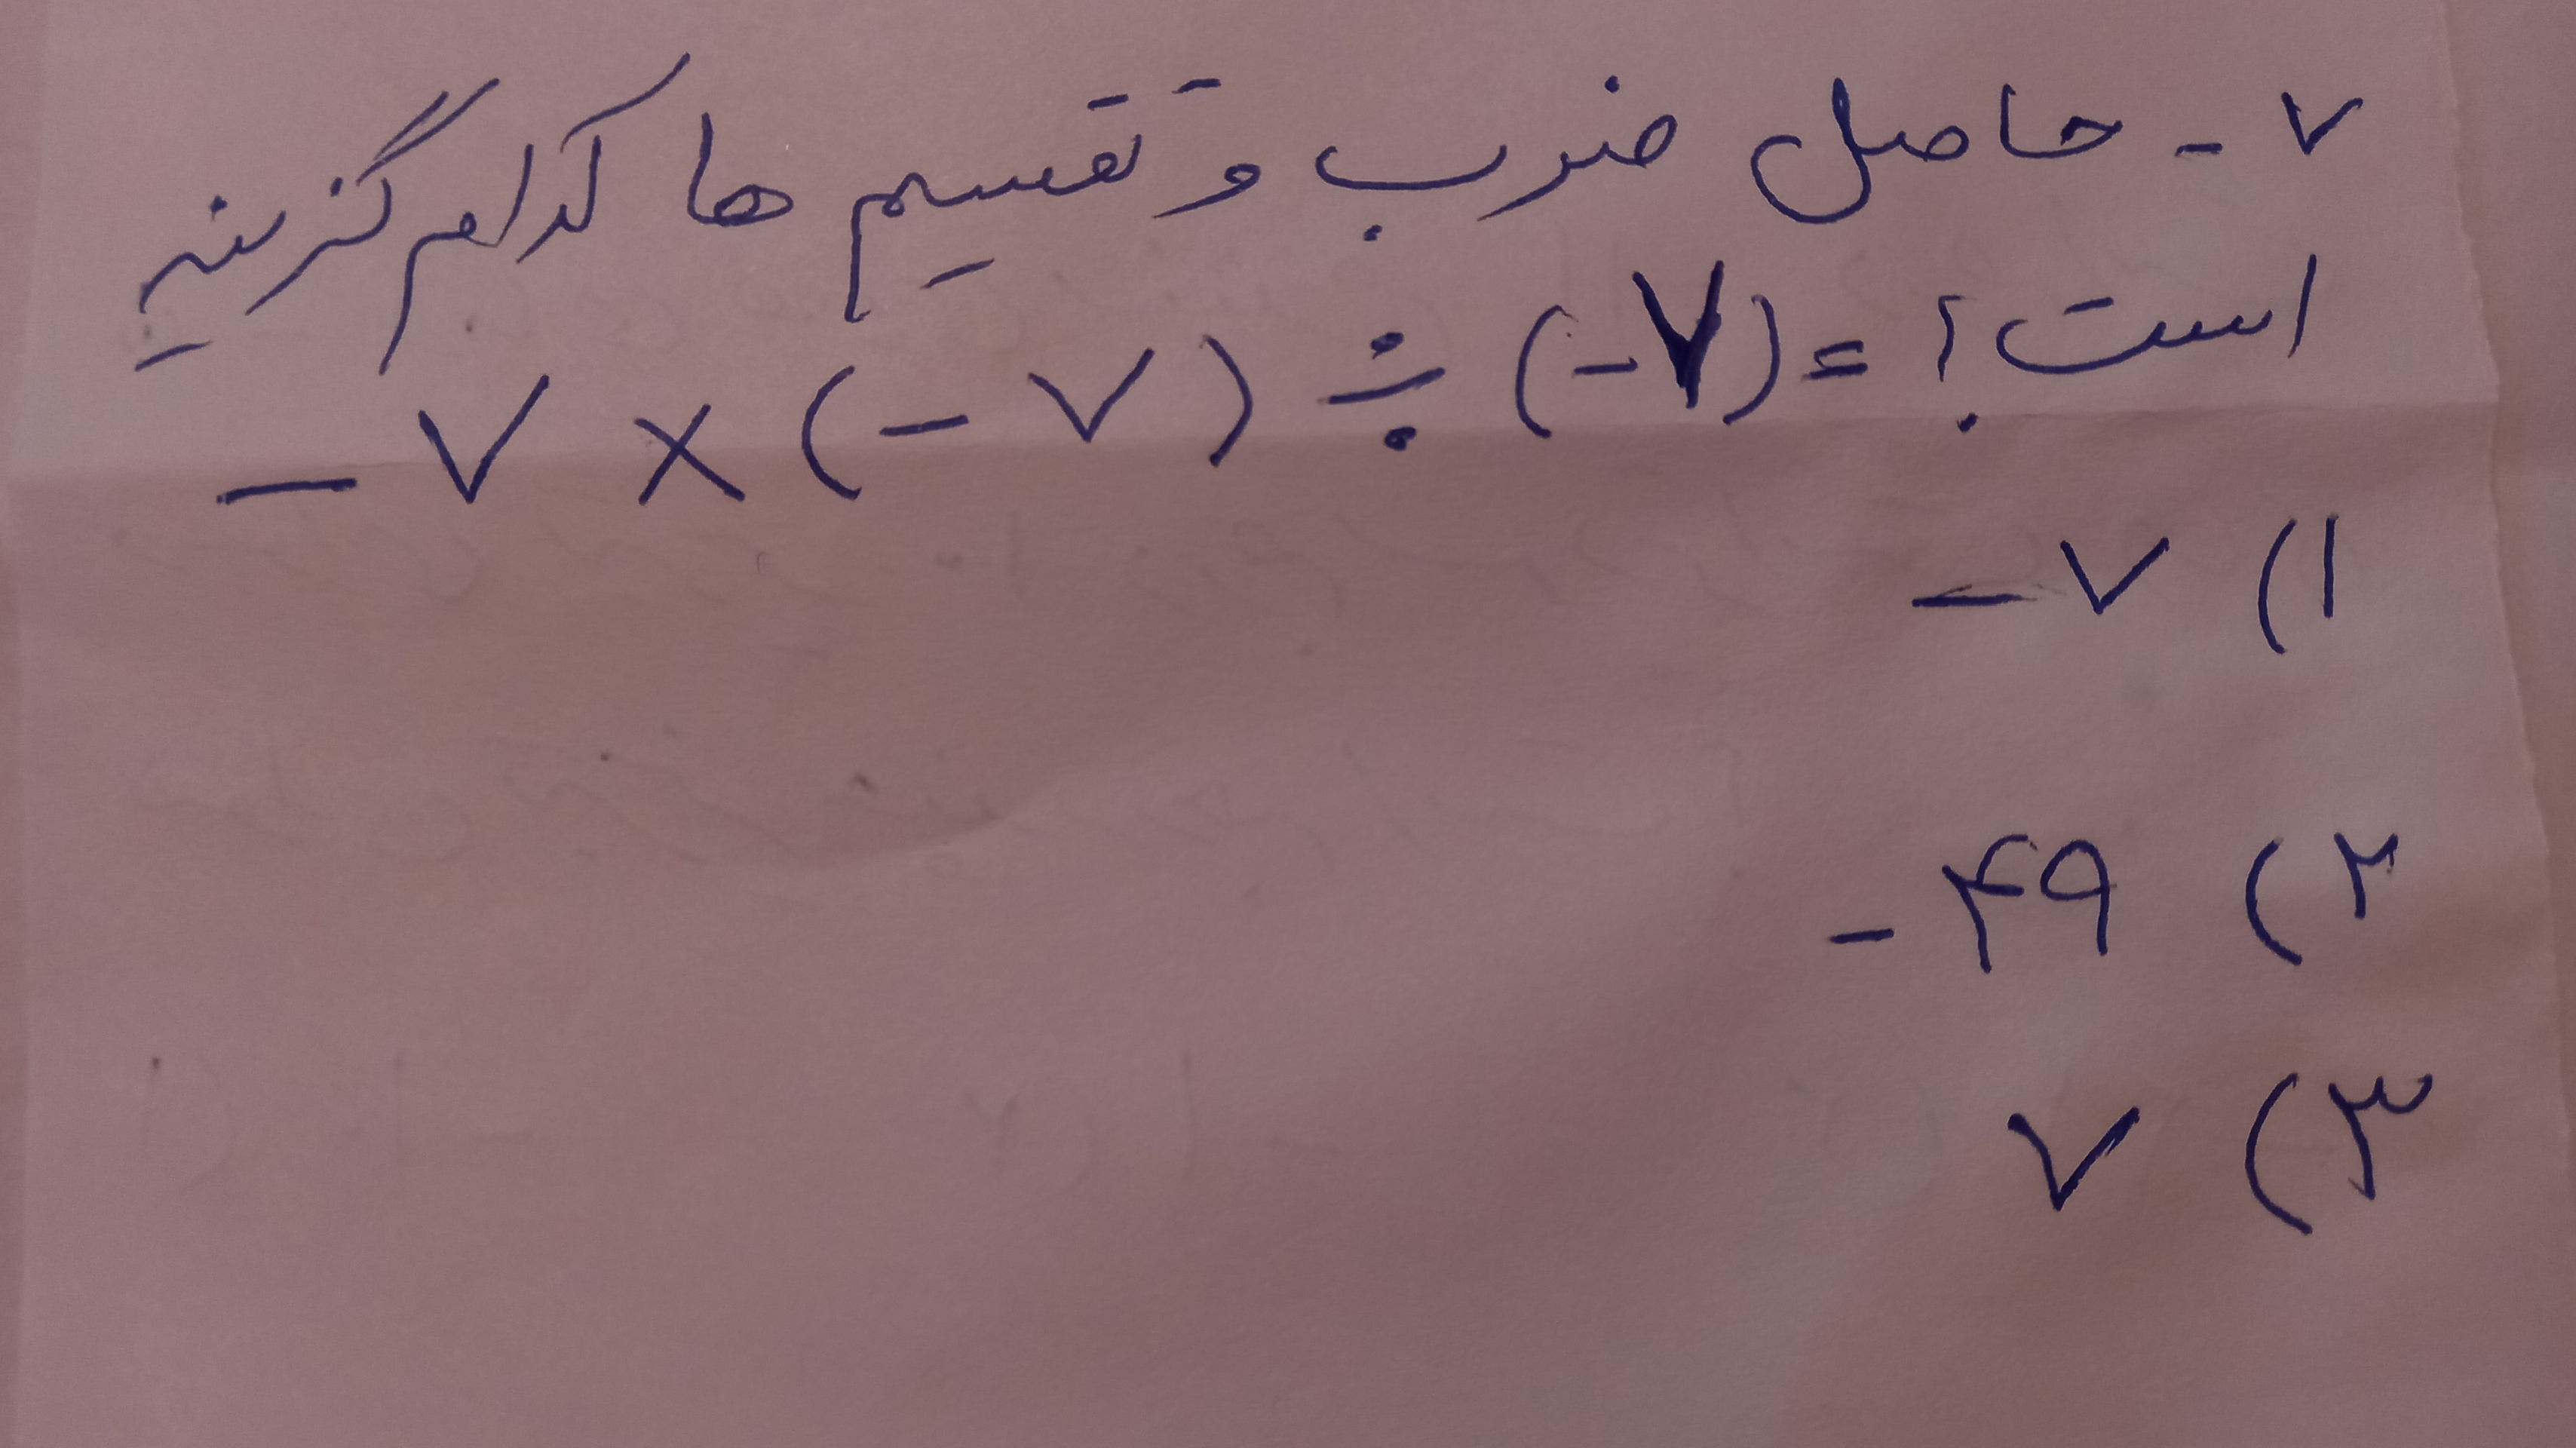 ۷- حاصل ضرب و تقسیم ها کدام گزینه
است؟ -۷ × (-۷) ÷ (-۷) =
۱) -۷
۲) -۴۹
۳) ۷